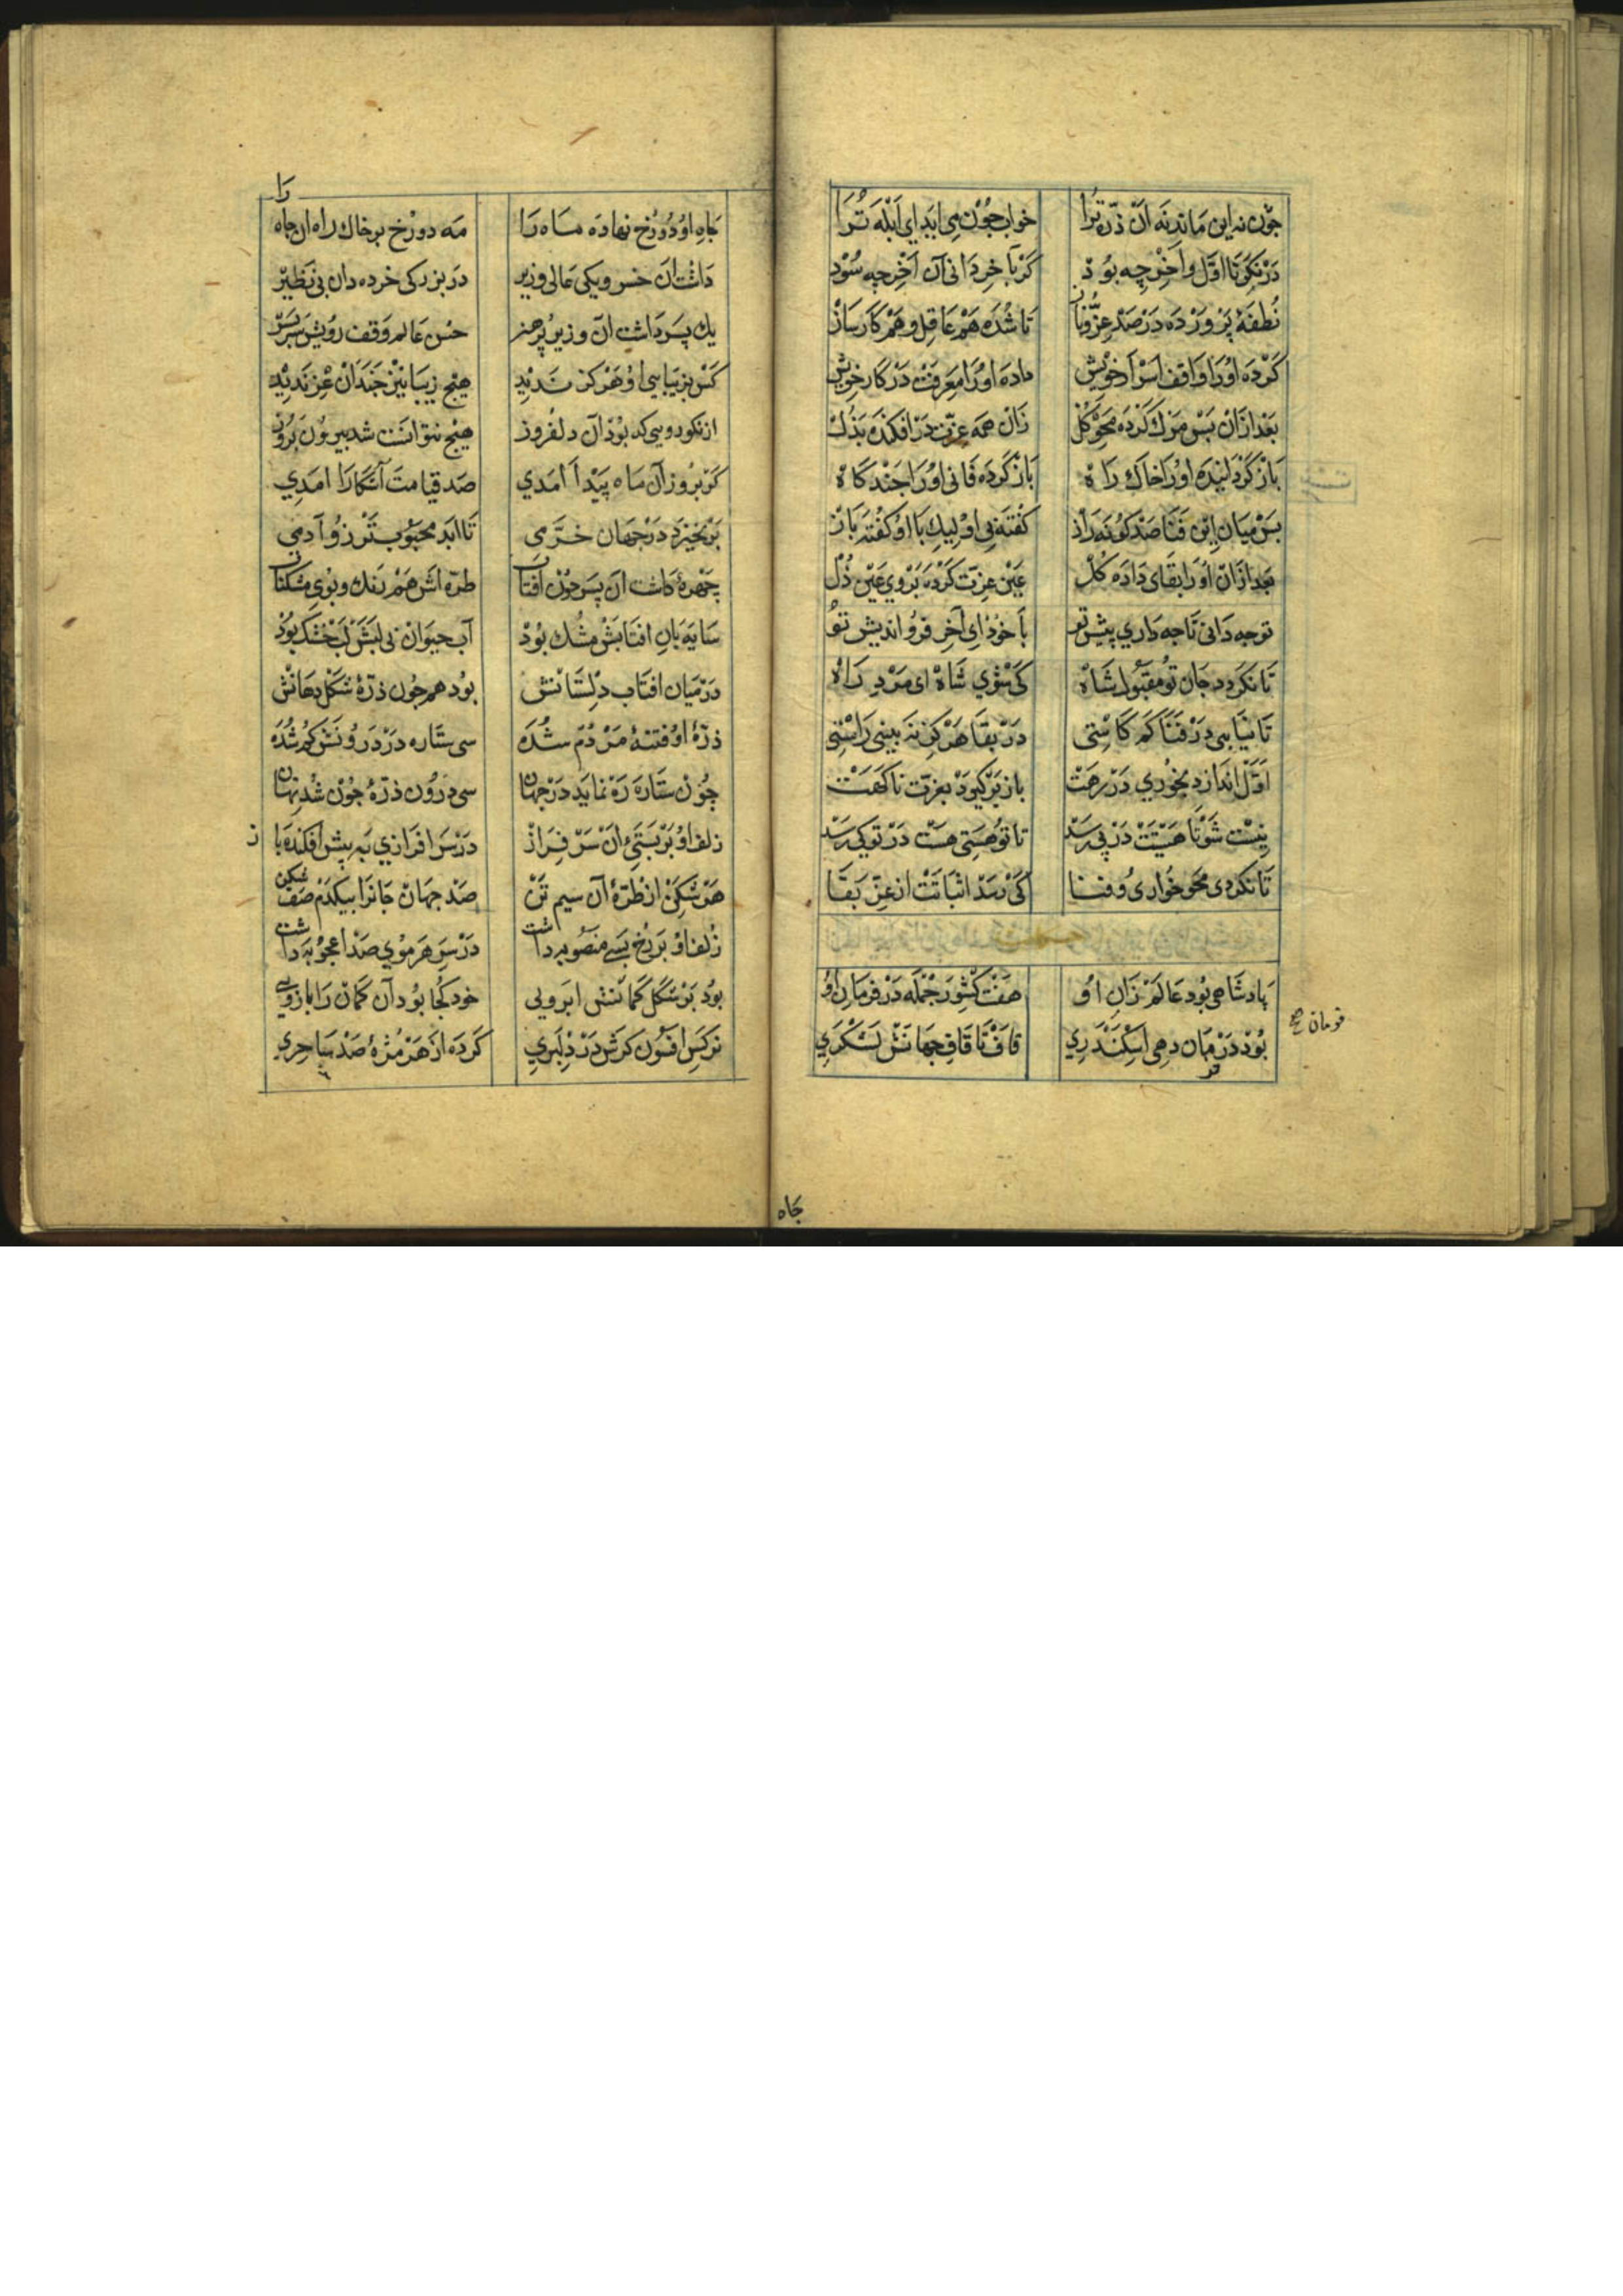 چون نه این ماند نه آن ذره ترا خواب چون می ابد ای ابله ترا
درنکر تا اول واخر چه بوذ کر باخر دانی آن آخر چه سود
نطفه پرورده درصد عز وناز تا شده هم عاقل وهم کارساز
کرده اورا واقف اسرار خویش داده اورا معرفت در کار خویش
بعد ازان بس مرک کرده محو کل زان همه عزت درافکنده بذل
باز کردانیده اورا خاک راه باز کرده فانی اورا چندکاه
بس میان این فنا صد کونه راز کفته بی او لیک با او کفته باز
بعد ازان اورا بقای داده کل عین عزت کرده بروی عین ذل
توچه دانی تا چه داری پیش تو با خود ای آخر فرو اندیش تو
تا نکردد جان تو مقبول شاه کی شوی شاه ای مرد راه
تا نیابی در فنا کم کاستی در بقا هرکز نه بینی راستی
اول اندازد بخوری در رهت باز برکیرد بعزت ناکهت
نیست شو تا هستیت در پی رسد تا تو هستی هست در تو کی رسد
تا نکردی محو خواری وفنا کی رسد اثباتت از عز بقا
پادشاهی بود عالم زان او هفت کشور جمله در فرمان او
فرمان صح
بود در فرمان دهی اسکندری قاف تا قاف جهانش لشکری
جاه
جاه او دو رخ نهاده ماه را مه دو رخ بر خاک راه ان جاه را
داشت ان خسرو یکی عالی وزیر در بزرکی خرده دان بی نظیر
یک پسر داشت ان وزیر پرهنر حسن عالم وقف رویش سربسر
کس بزیبایی او هرکز ندید هیچ زیبا نیز چندان عز ندید
از نکورویی که بود آن دلفروز هیچ نتوانست شد بیرون بروز
کر بروز آن ماه پیدا آمدی صد قیامت آشکارا امدی
برنخیزد در جهان خرمی تا ابد محبوبتر زو آدمی
چهره داشت ان پسر چون افتاب طره اش هم رنک وبوی مشکناب
سایه بان افتابش مشک بود آب حیوان بی لبش لب خشک بود
درمیان افتاب دلستانش بود همچون ذره شکل دهانش
ذره او فتنه مردم شده سی ستاره در درونش کم شده
چون ستاره ره نماید در جهان سی درون ذره چون شد نهان
زلف او بر بستی ان سر فراز درسر افرازی به پیش افکنده باز
هر شکن از طره آن سیم تن صد جهان جانرا بیکدم صف شکن
زلف او بر رخ بسی منصوبه داشت درسر هر موی صد اعجوبه داشت
بود بر شکل کمانش ابرویی خود کجا بود آن کمان را بازویی
نرکس افسون کرش در دلبری کرده از هر مژه صد ساحری